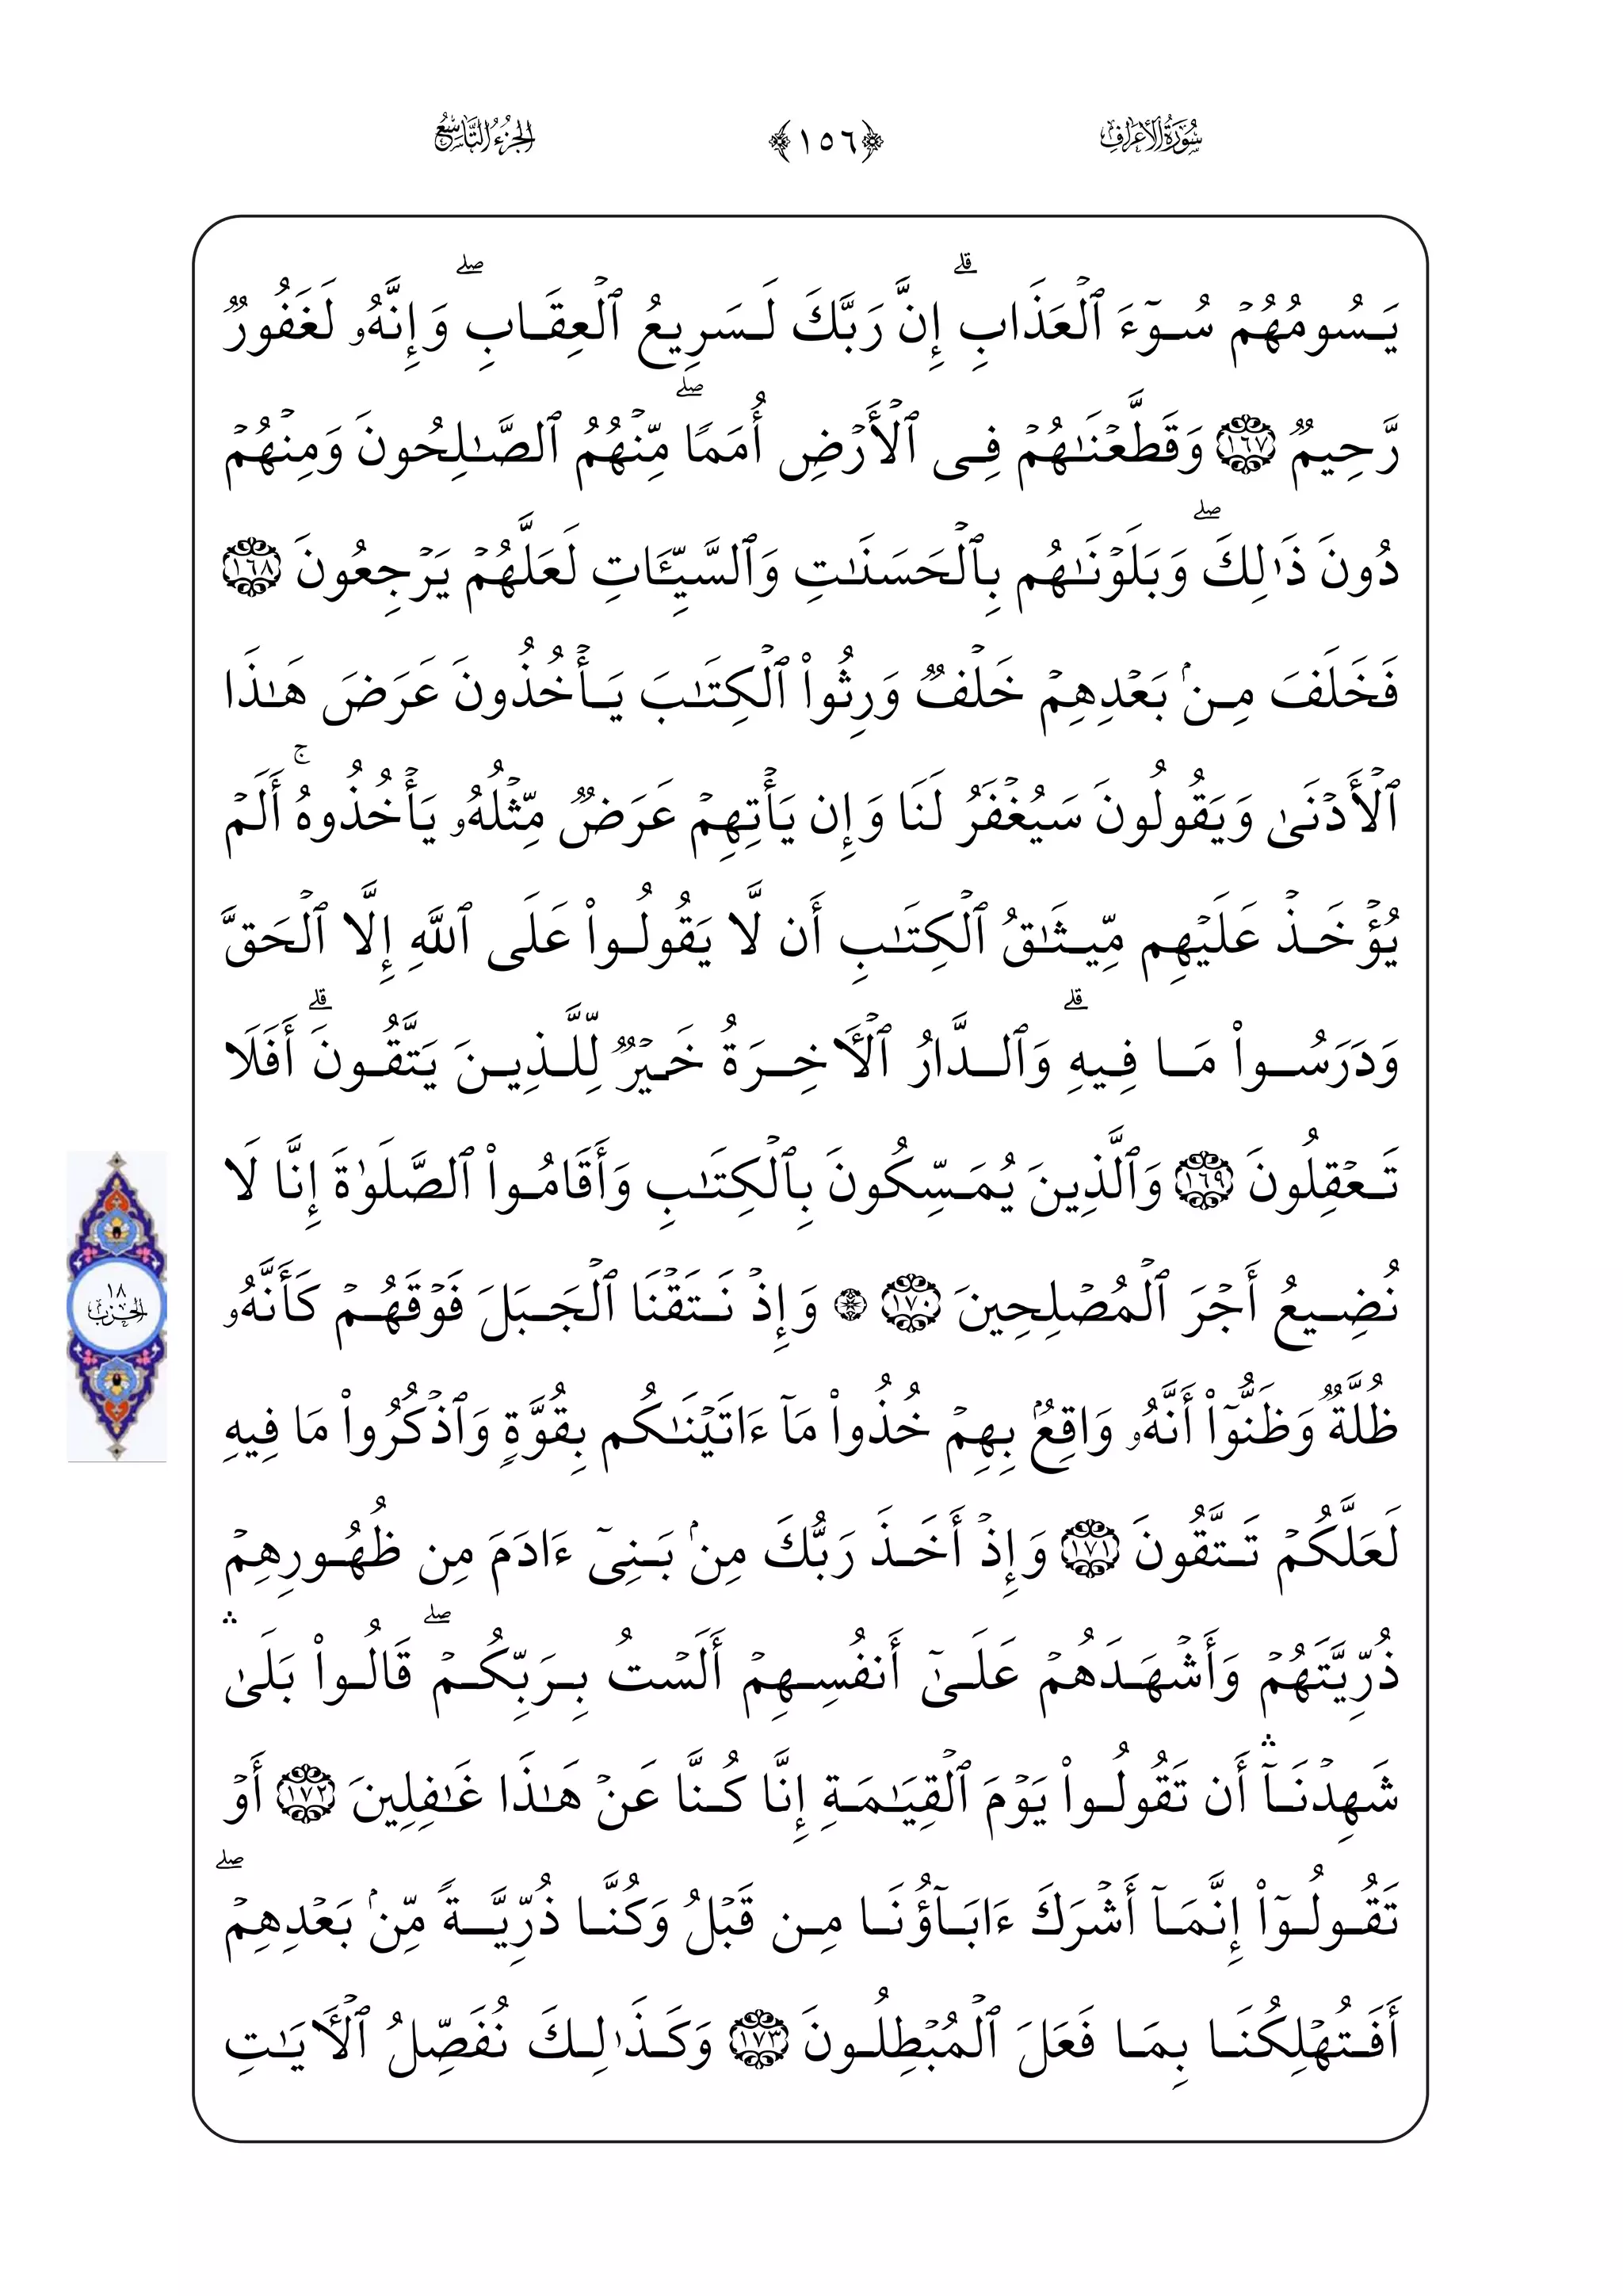 سُورَةُ الأَعْرَافِ ﴿١٥٦﴾ الجُزْءُ التَّاسِعُ
يَسُومُهُمۡ سُوٓءَ ٱلۡعَذَابِۗ إِنَّ رَبَّكَ لَسَرِيعُ ٱلۡعِقَابِۖ وَإِنَّهُۥ لَغَفُورٞ
رَّحِيمٞ ١٦٧ وَقَطَّعۡنَٰهُمۡ فِى ٱلۡأَرۡضِ أُمَمٗاۖ مِّنۡهُمُ ٱلصَّٰلِحُونَ وَمِنۡهُمۡ
دُونَ ذَٰلِكَۖ وَبَلَوۡنَٰهُم بِٱلۡحَسَنَٰتِ وَٱلسَّيِّـَٔاتِ لَعَلَّهُمۡ يَرۡجِعُونَ ١٦٨
فَخَلَفَ مِنۢ بَعۡدِهِمۡ خَلۡفٞ وَرِثُواْ ٱلۡكِتَٰبَ يَأۡخُذُونَ عَرَضَ هَٰذَا
ٱلۡأَدۡنَىٰ وَيَقُولُونَ سَيُغۡفَرُ لَنَا وَإِن يَأۡتِهِمۡ عَرَضٞ مِّثۡلُهُۥ يَأۡخُذُوهُۚ أَلَمۡ
يُؤۡخَذۡ عَلَيۡهِم مِّيثَٰقُ ٱلۡكِتَٰبِ أَن لَّا يَقُولُواْ عَلَى ٱللَّهِ إِلَّا ٱلۡحَقَّ
وَدَرَسُواْ مَا فِيهِۗ وَٱلدَّارُ ٱلۡأٓخِرَةُ خَيۡرٞ لِّلَّذِينَ يَتَّقُونَۗ أَفَلَا
تَعۡقِلُونَ ١٦٩ وَٱلَّذِينَ يُمَسِّكُونَ بِٱلۡكِتَٰبِ وَأَقَامُواْ ٱلصَّلَوٰةَ إِنَّا لَا
نُضِيعُ أَجۡرَ ٱلۡمُصۡلِحِينَ ١٧٠ ۞ وَإِذۡ نَتَقۡنَا ٱلۡجَبَلَ فَوۡقَهُمۡ كَأَنَّهُۥ
ظُلَّةٞ وَظَنُّوٓاْ أَنَّهُۥ وَاقِعُۢ بِهِمۡ خُذُواْ مَآ ءَاتَيۡنَٰكُم بِقُوَّةٖ وَٱذۡكُرُواْ مَا فِيهِ
لَعَلَّكُمۡ تَتَّقُونَ ١٧١ وَإِذۡ أَخَذَ رَبُّكَ مِنۢ بَنِىٓ ءَادَمَ مِن ظُهُورِهِمۡ
ذُرِّيَّتَهُمۡ وَأَشۡهَدَهُمۡ عَلَىٰٓ أَنفُسِهِمۡ أَلَسۡتُ بِرَبِّكُمۡۖ قَالُواْ بَلَىٰۛ
شَهِدۡنَآۛ أَن تَقُولُواْ يَوۡمَ ٱلۡقِيَٰمَةِ إِنَّا كُنَّا عَنۡ هَٰذَا غَٰفِلِينَ ١٧٢ أَوۡ
تَقُولُوٓاْ إِنَّمَآ أَشۡرَكَ ءَابَآؤُنَا مِن قَبۡلُ وَكُنَّا ذُرِّيَّةٗ مِّنۢ بَعۡدِهِمۡۖ
أَفَتُهۡلِكُنَا بِمَا فَعَلَ ٱلۡمُبۡطِلُونَ ١٧٣ وَكَذَٰلِكَ نُفَصِّلُ ٱلۡأٓيَٰتِ
١٨
الحزب